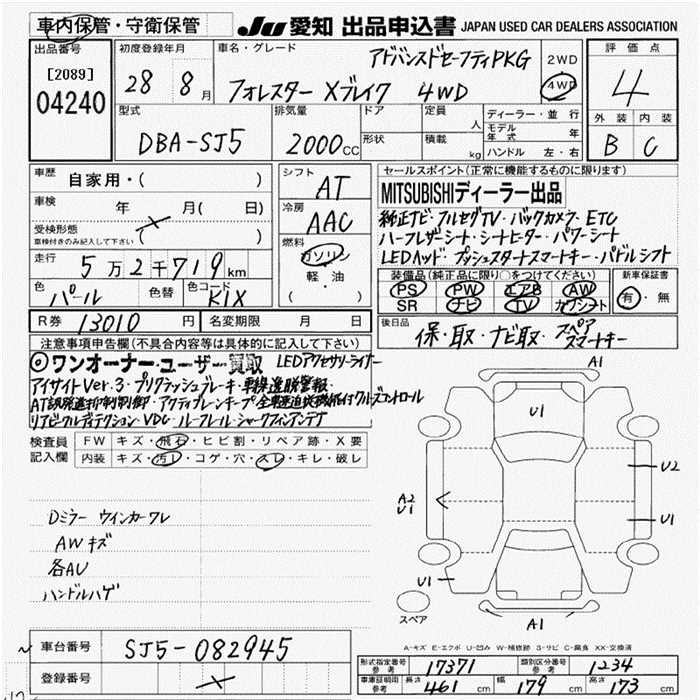 車内保管・守衛保管
JU 愛知 出品申込書 JAPAN USED CAR DEALERS ASSOCIATION
出品番号
[2089]
04240
初度登録年月
28 8月
車名・グレード
アドバンスドセーフティPKG
フォレスター Xブレイク 4WD
2WD
4WD
評価点
4
外装 内装
B C
型式
DBA-SJ5
排気量
2000cc
ドア
形状
定員 人
積載 kg
ディーラー・並行
モデル年式 年
ハンドル 左・右
車歴 自家用・( )
車検 年 月( 日)
受検形態
車検付きのみ記入して下さい ( )
走行 5万2千719km
色 パール 色替 色コード K1X
R券 13010円 名変期限 月 日
シフト AT
冷房 AAC
燃料 ガソリン
軽・油
( )
セールスポイント(正常に機能するものに限ります)
MITSUBISHIディーラー出品
純正ナビ・フルセグTV・バックカメラ・ETC
ハーフレザーシート・シートヒーター・パワーシート
LEDヘッド・プッシュスタートスマートキー・パドルシフト
装備品(純正品に限り○をつけてください)
PS PW エアB AW
SR ナビ TV カワシート
新車保証書
有・無
後日品
保・取・ナビ取・スペアスマートキー
注意事項申告欄(不具合内容等は具体的に記入して下さい)
◎ワンオーナー・ユーザー買取 LEDアクセサリーライナー
アイサイトVer.3・プリクラッシュブレーキ・車線逸脱警報
AT誤発進抑制制御・アクティブレーンキープ・全車速追従機能付クルーズコントロール
リアビークルディテクション VDC ルーフレール・シャークフィンアンテナ
検査員記入欄
FW キズ・飛石・ヒビ割・リペア跡・X要
内装 キズ・汚レ・コゲ・穴・スレ・キレ・破レ
Dミラー ウインカーワレ
AWキズ
各AU
ハンドルハゲ
A1
U1
U2
A2
U1
U1
U1
A1
スペア
A-キズ E-エクボ U-凹み W-補修跡 S-サビ C-腐食 XX-交換済
車台番号 SJ5-082945
登録番号
形式指定番号 参考 17371 類別区分番号 参考 1234
車庫証明用 参考 長さ 461cm 幅 179cm 高さ 173cm